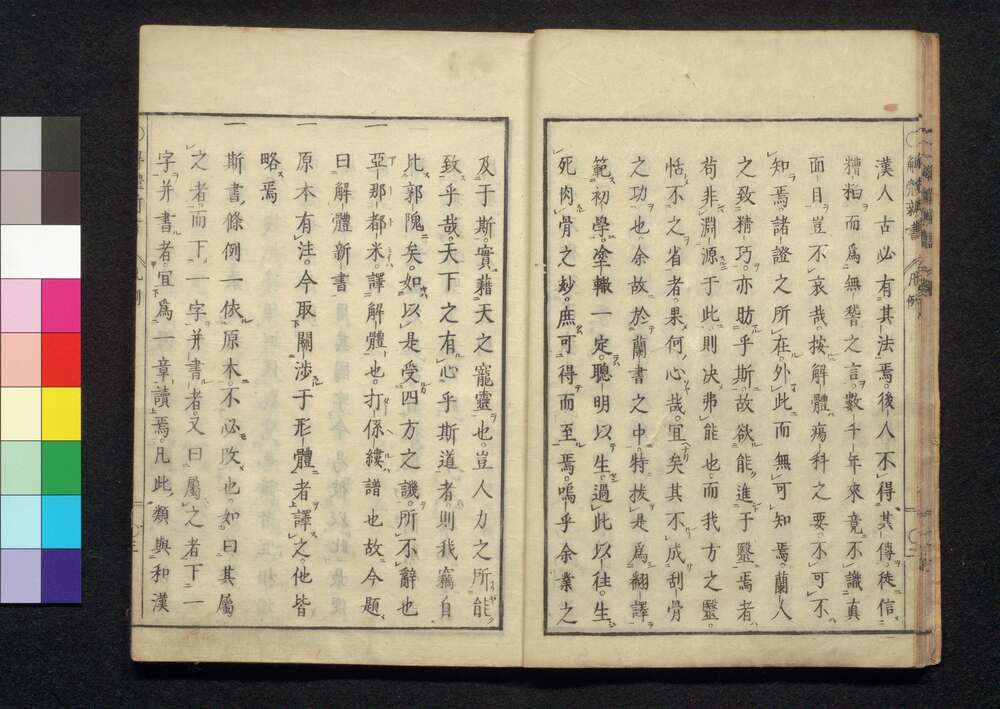 漢人古必有其法焉。後人不得其傳。徒信
糟粕而爲無晢之言。數千年來竟不識眞
面目。豈不哀哉。按解體瘍科之要。不可不
知焉。諸證之所在。外此而無可知焉。蘭人
之致精巧。亦肪乎斯。故欲能進于毉焉者
苟非淵源于此。則決弗能也。而我方之毉。
恬不之省者。果何心哉。宜矣其不成刮骨
之功也。余故於蘭書之中。特拔是爲翻譯
範初學。塗轍一定。聰明以生。過此以往。生
死肉骨之玅。庶可得而至焉。嗚乎余業之
及于斯。實藉天之寵靈也。豈人力之所能
致乎哉。天下之有心乎斯道者。則我竊自
比郭隗矣。如以是受四方之譏。所不辭也
一亞那都米譯解體也。打係縷譜也故今題
曰解體新書
一原本有注。今取關涉于形體者譯之他皆
略焉
一斯書條例一依原本。不必改也。如曰其屬
之者。而下一字并書者。又曰屬之者下二
字并書者。宜爲一章讀焉。凡此類與和漢
解體新書
凡例